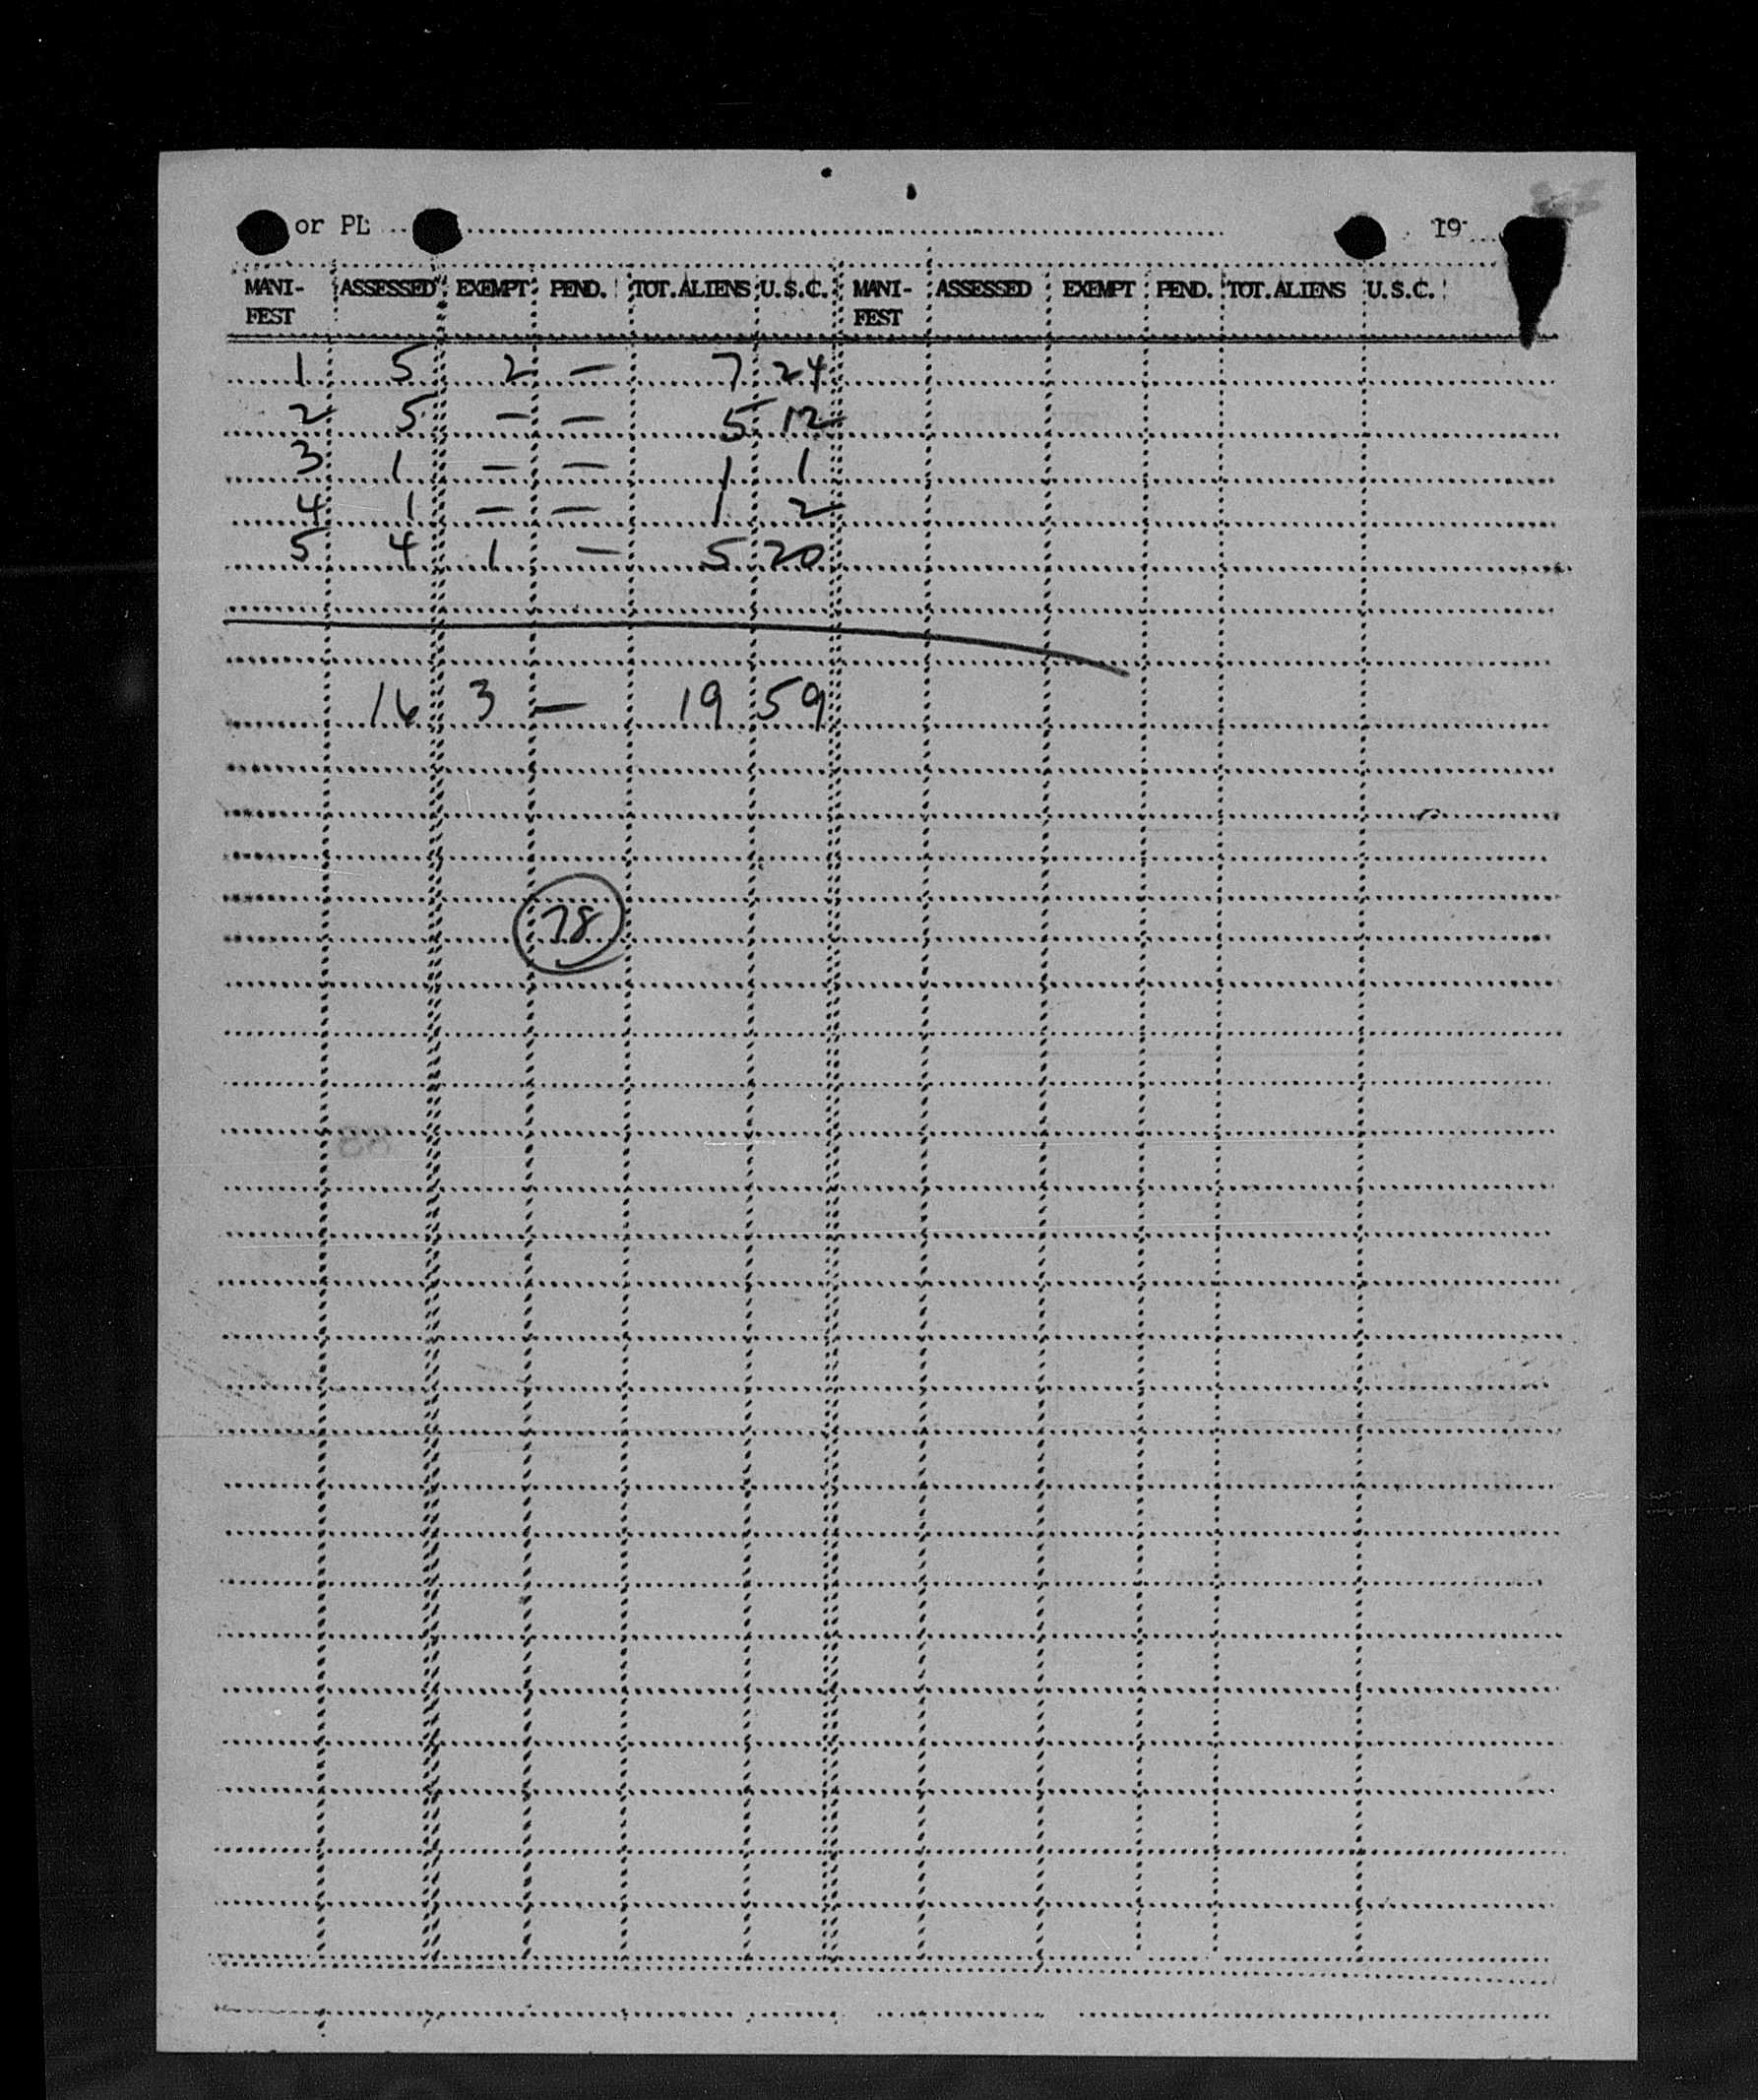 or PL 19
MANI- ASSESSED EXEMPT PEND. TOT. ALIENS U.S.C. MANI- ASSESSED EXEMPT PEND. TOT. ALIENS U.S.C.
FEST FEST
1 5 2 — 7 24
2 5 — — 5 12
3 1 — — 1 1
4 1 — — 1 2
5 4 1 — 5 20
16 3 — 19 59
78